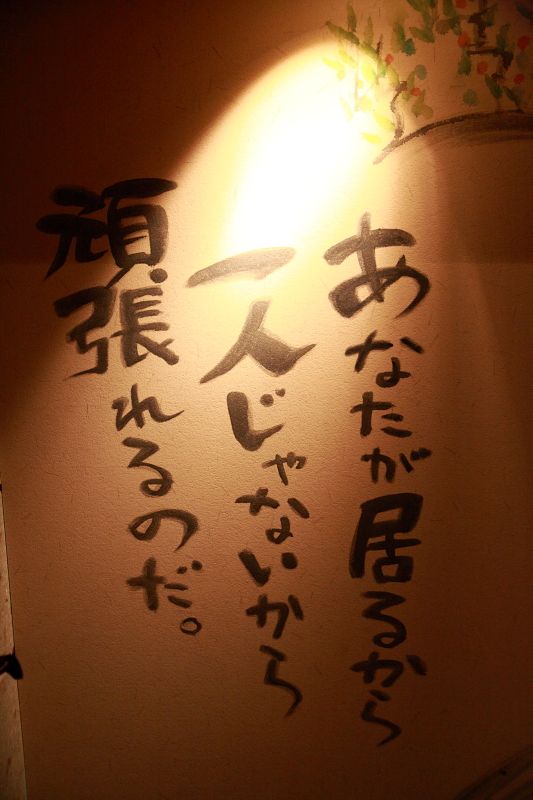 あなたが居るから
一人じゃないから
頑張れるのだ。